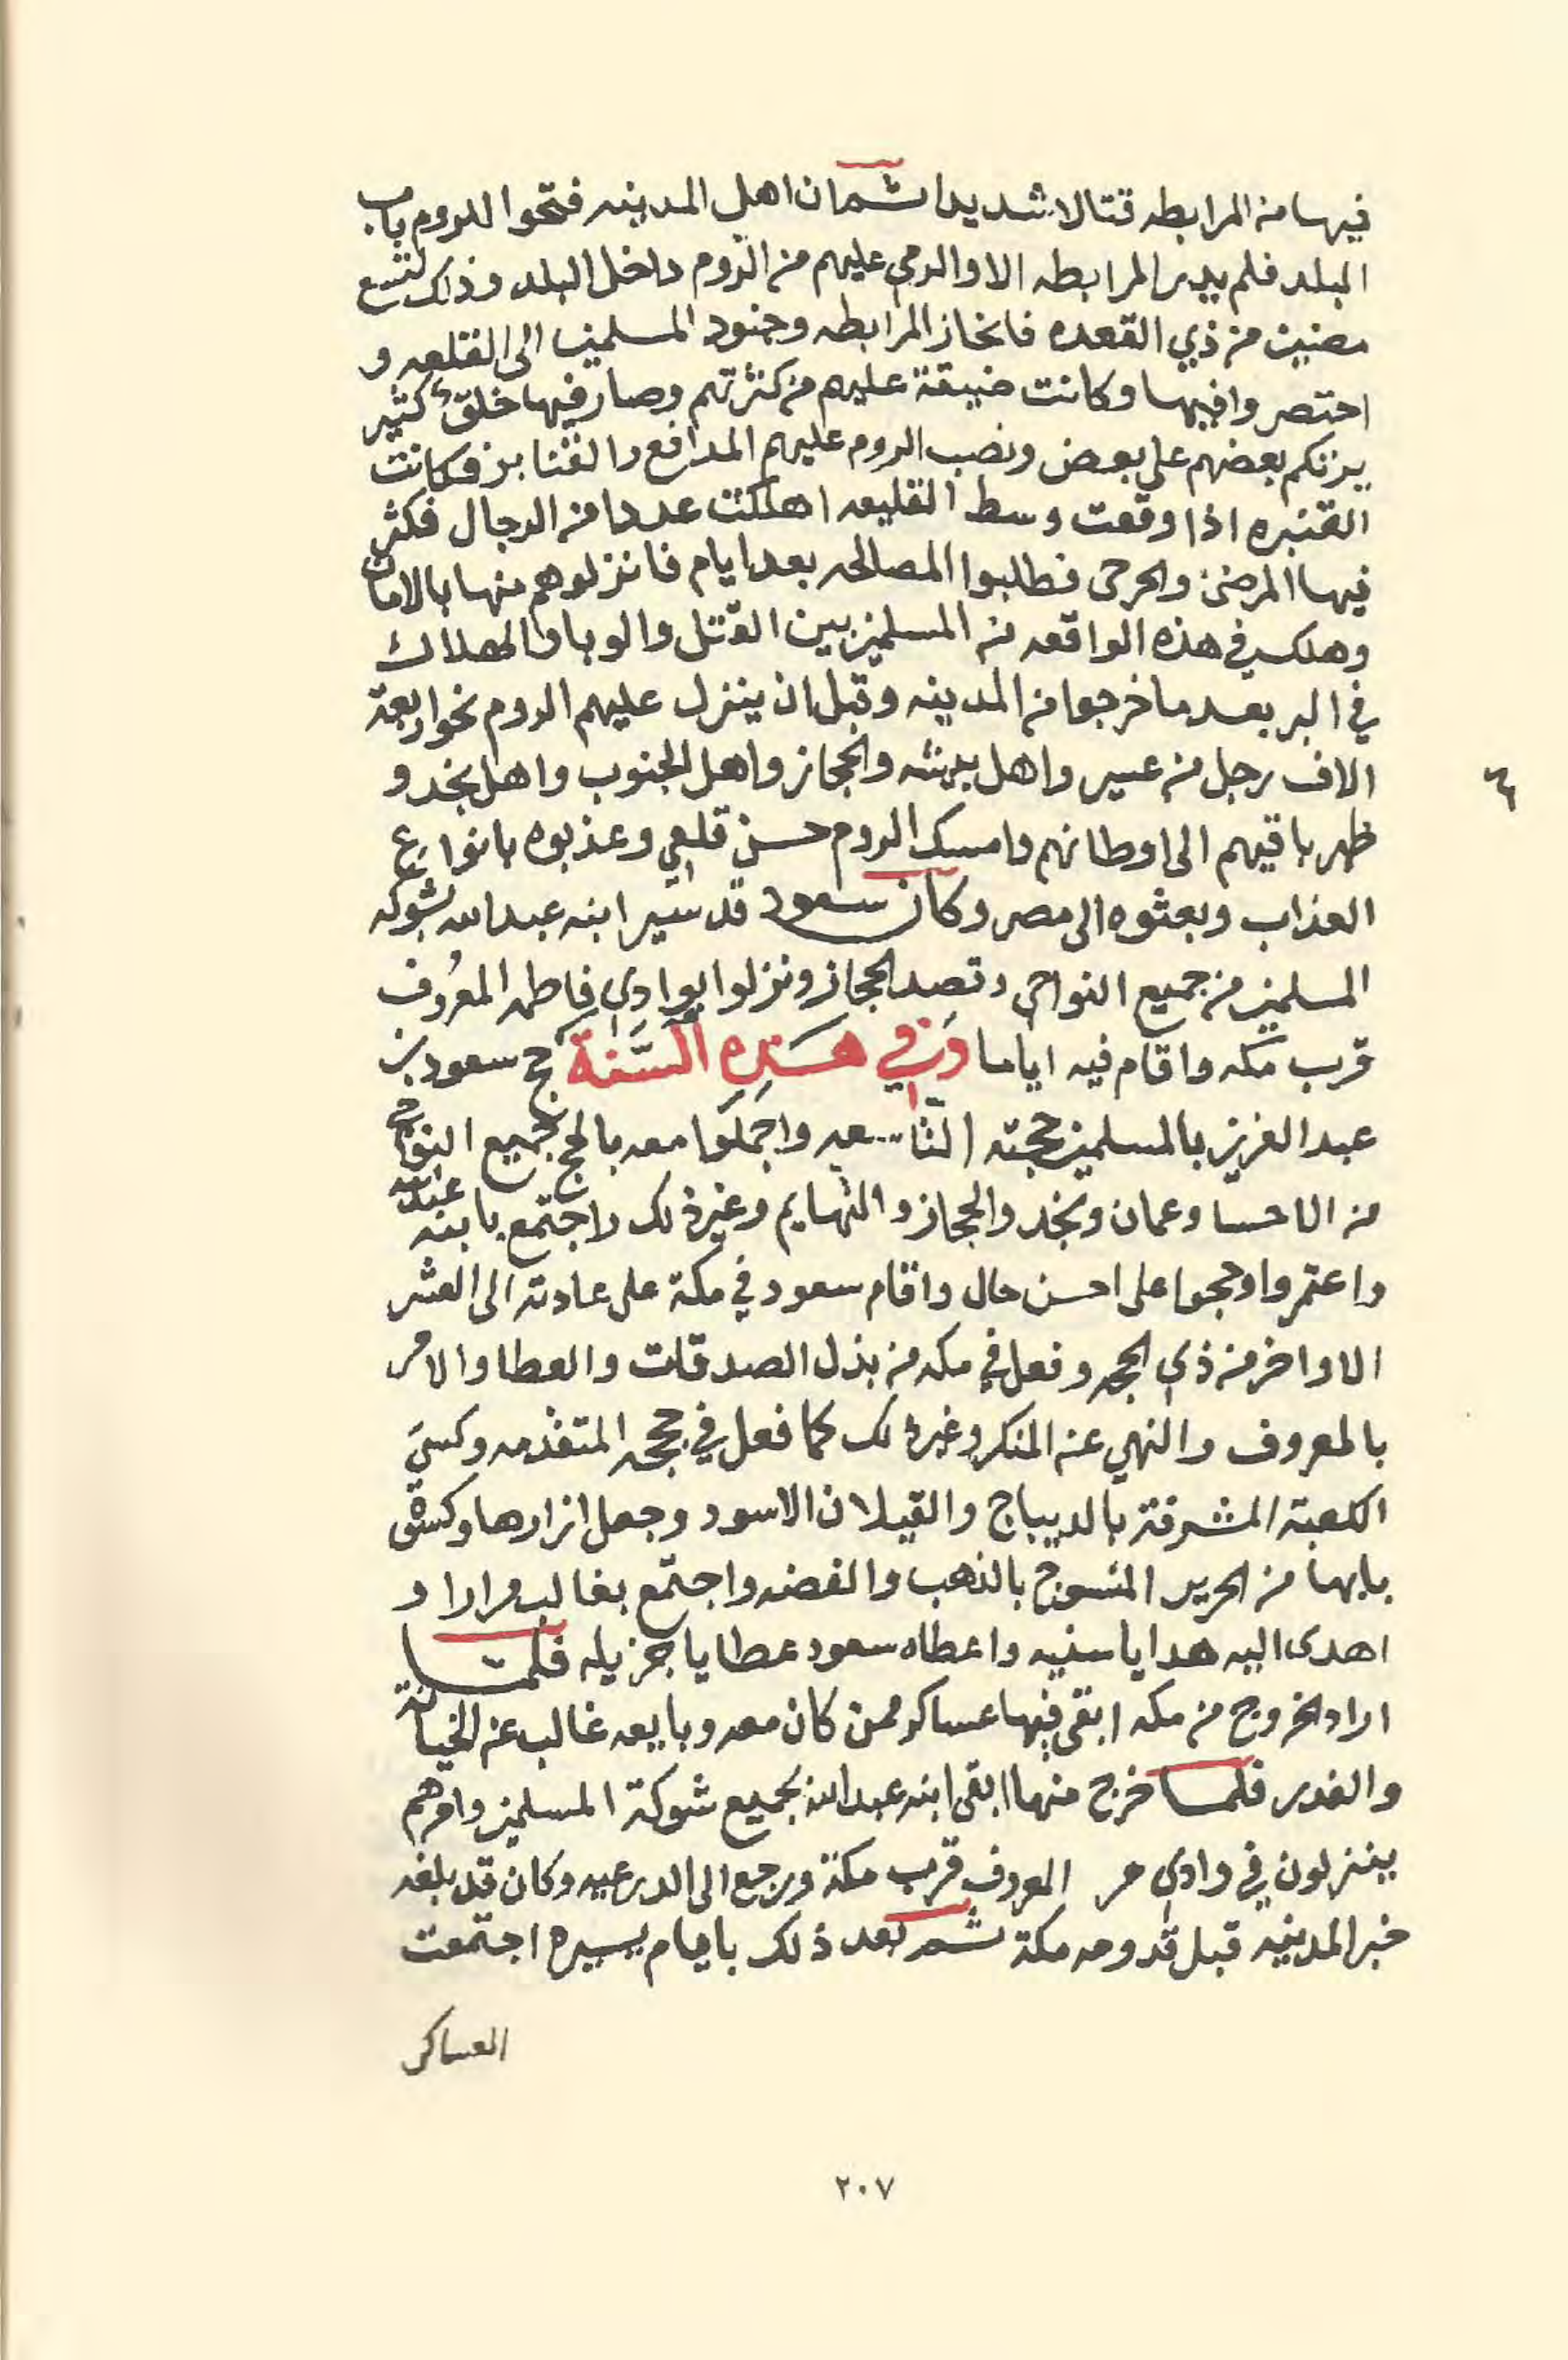 فيها من المرابطه قتالا شديدا ثم ان اهل المدينه فتحوا للروم باب
البلد فلم يدر المرابطه الا والرمي عليهم من الروم داخل البلد وذلك لتسع
مضين من ذي القعده فانحاز المرابطه وجنود المسلمين الى القلعه و
احتصروا فيها وكانت ضيقة عليهم من كثرتهم وصار فيها خلق كثير
يرتكم بعضهم على بعض ونصب الروم عليهم المدافع والقنابز فكانت
القنبره اذا وقعت وسط القليعه اهلكت عددا من الرجال فكثر
فيها المرضى والجرحى فطلبوا المصالحه بعد ايام فانزلوهم منها بالامان
وهلك في هذه الواقعه من المسلمين بين القتل والوبا والهلاك
في البر بعد ما خرجوا من المدينه وقبل ان ينزل عليهم الروم نحو اربعة
الاف رجل من عسير واهل بيشه والحجاز واهل الجنوب واهل نجد و
ظهر باقيهم الى اوطانهم وامسك الروم حسن قلعي وعذبوه بانواع
العذاب وبعثوه الى مصر وكان سعود قد سير ابنه عبدالله بشوكه
المسلمين من جميع النواحي وقصد الحجاز ونزلوا بوادي فاطمه المعروف
قرب مكه واقام فيه اياما وفي هذه السنة حج سعود بن
عبدالعزيز بالمسلمين حجته التاسعه واجملوا معه بالحج جميع النواحي
من الاحسا وعمان ونجد والحجاز والتهايم وغير ذلك واجتمع بابنه عبدالله
واعتمروا وحجوا على احسن حال واقام سعود في مكة على عادته الى العشر
الاواخر من ذي الحجه وفعل في مكه من بذل الصدقات والعطا والامر
بالمعروف والنهي عن المنكر وغير ذلك كما فعل في حججه المتقدمه وكسى
الكعبة المشرفة بالديباج والقيلان الاسود وجعل ازارها وكسوة
بابها من الحرير المنسوج بالذهب والفضه واجتمع بغالب مرارا و
اهدى اليه هدايا سنيه واعطاه سعود عطايا جزيله فلما
اراد الخروج من مكه ابقى فيها عساكر ممن كان معه وبايعه غالب عن الخيانة
والغدر فلما خرج منها ابقى ابنه عبدالله بجميع شوكة المسلمين وامرهم
ينزلون في وادي مر المعروف قرب مكة ورجع الى الدرعيه وكان قد بلغه
خبر المدينه قبل قدومه مكة ثم بعد ذلك بايام يسيره اجتمعت
العساكر
٢٠٧